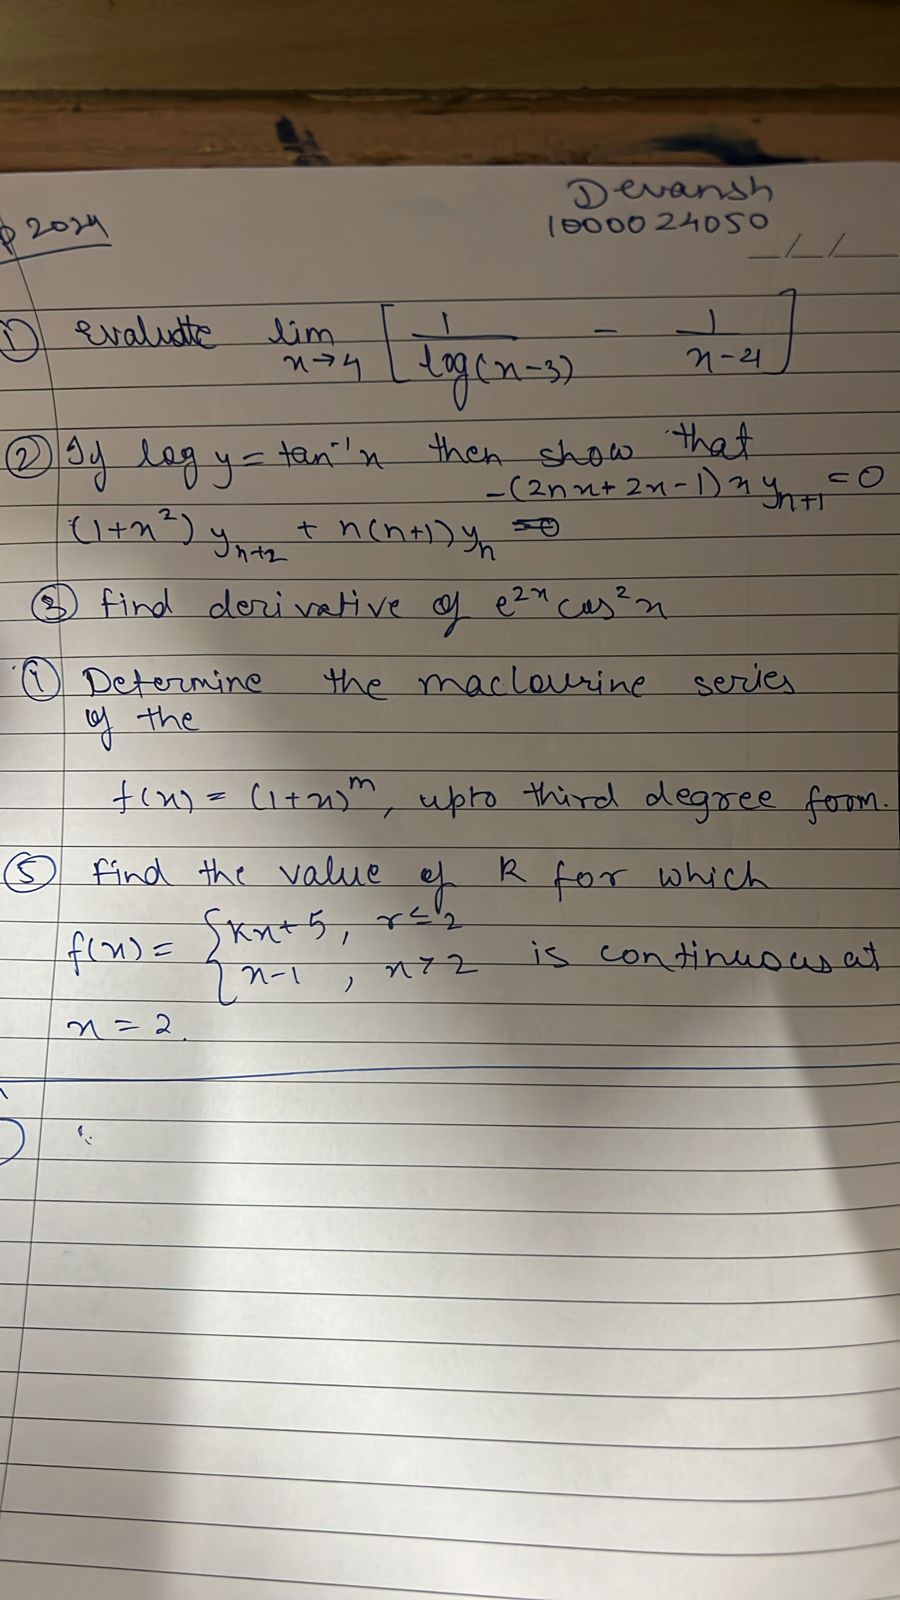 Devansh
2024
1000024050
_/_/_
① evaluate lim x→4 [1/log(x-3) - 1/x-4]
② If log y = tan⁻¹x then show that
-(2nx+2x-1)xyₙ₊₁ = 0
(1+x²) yₙ₊₂ + n(n+1)yₙ
③ find derivative of e²ˣ cos²x
④ Determine the maclourine series
of the
f(x) = (1+x)ᵐ, upto third degree foom.
⑤ find the value of k for which
f(x) = { kx+5, x≤2
{ x-1, x>2 is continuous at
x = 2.